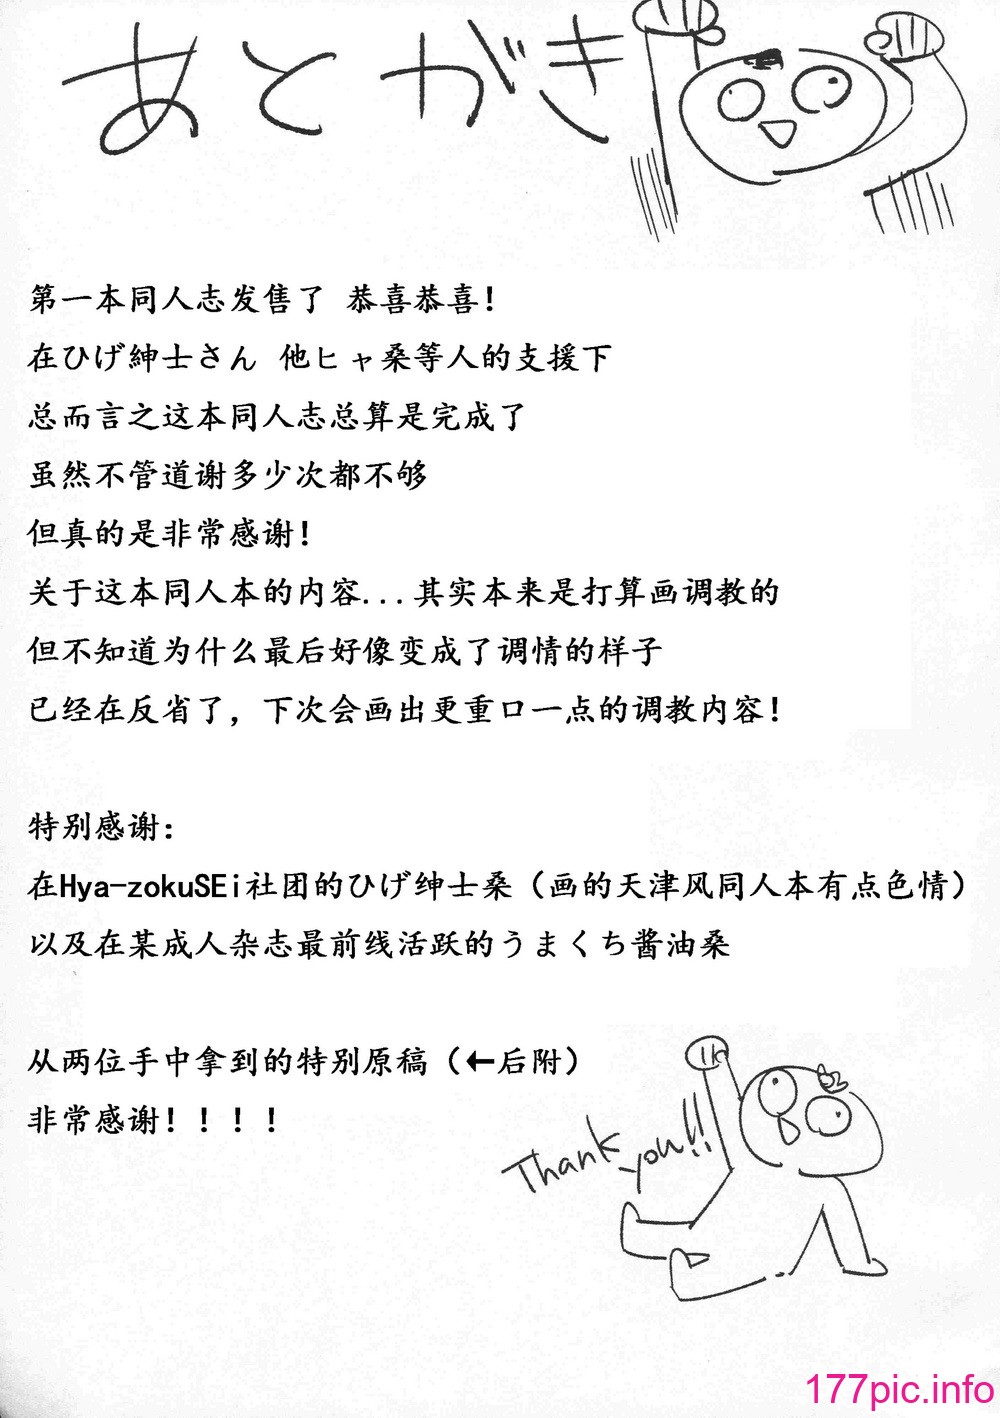 あとがき
第一本同人志发售了 恭喜恭喜！
在ひげ紳士さん 他ヒャ桑等人的支援下
总而言之这本同人志总算是完成了
虽然不管道谢多少次都不够
但真的是非常感谢！
关于这本同人本的内容...其实本来是打算画调教的
但不知道为什么最后好像变成了调情的样子
已经在反省了，下次会画出更重口一点的调教内容！
特别感谢：
在Hya-zokuSEi社团的ひげ绅士桑（画的天津风同人本有点色情）
以及在某成人杂志最前线活跃的うまくち酱油桑
从两位手中拿到的特别原稿（←后附）
非常感谢！！！！
Thank you!!
177pic.info